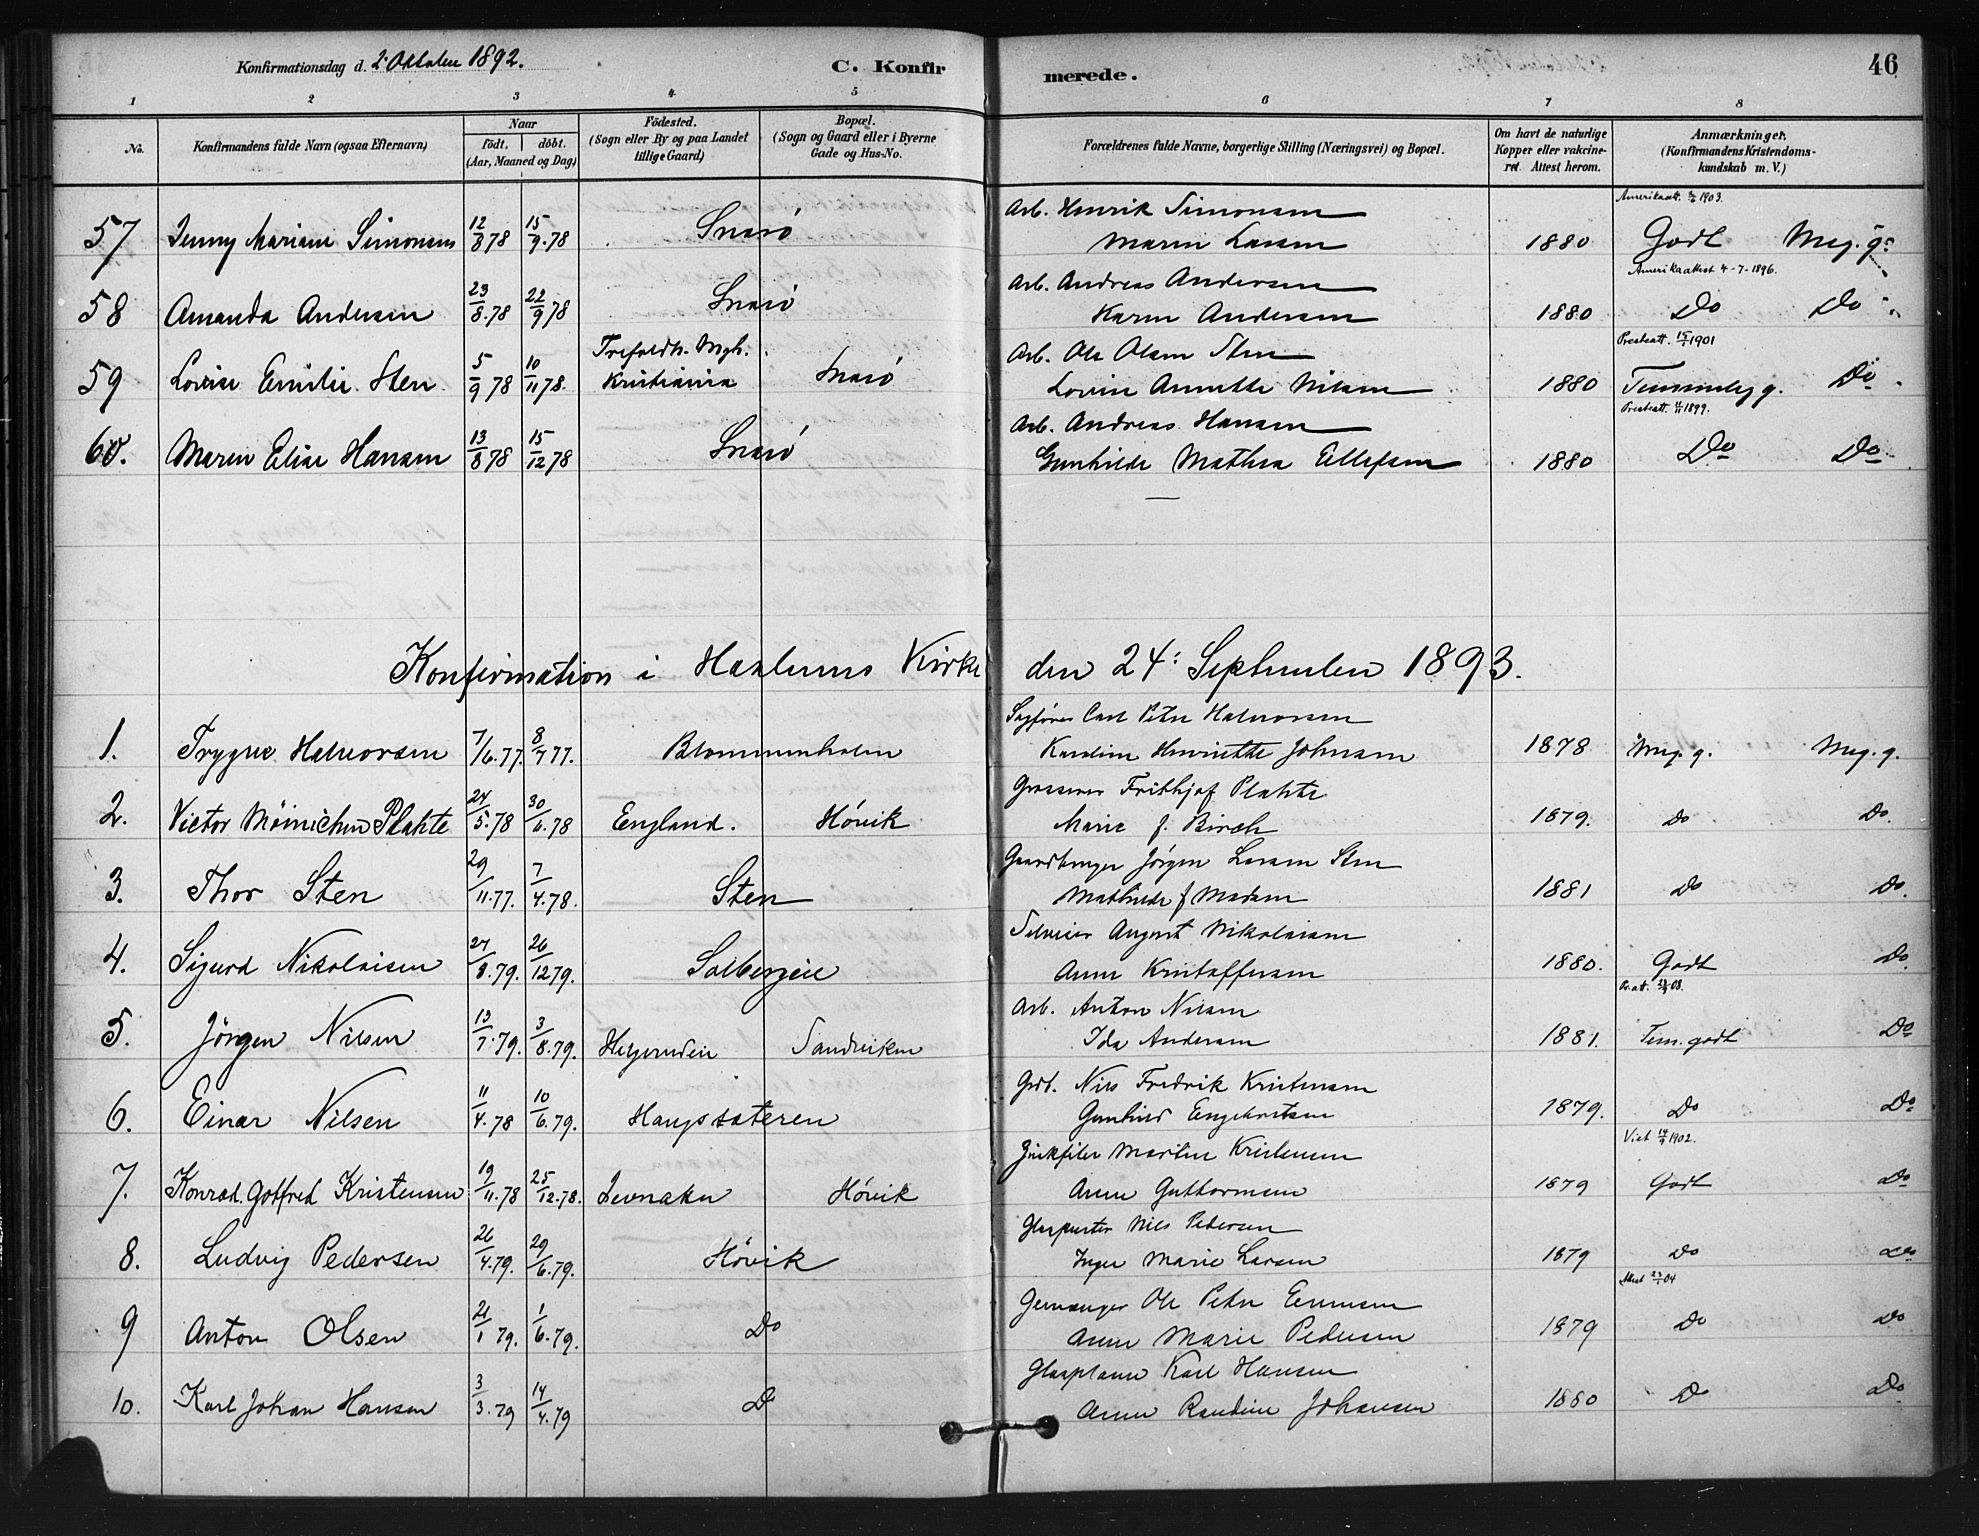 Konfirmationsdag d. 2. Oktober 1892.
C. Konfirmerede.
46
1 2 3 4 5 6 7 8
No. Konfirmandens fulde Navn (ogsaa Efternavn) Naar født, døbt. (Aar, Maaned og Dag) Fødested. (Sogn eller By og paa Landet tillige Gaard) Bopæl. (Sogn og Gaard eller i Byerne Gade og Hus-No.
Forældrenes fulde Navne, borgerlige Stilling (Næringsvei) og Bopæl. Om havt de naturlige Kopper eller vakcineret. Attest herom. Anmærkninger. (Konfirmandens Kristendomskundskab m. V.)
Arb. Henrik Simonsen Amerikaatt. 1903.
57 Jenny Mariane Simonsen 12/8 78 15/9.78 Snarö Maren Larsen 1880 Godt Meg. g.
Arb. Andreas Andersen Amerikaattest 4-7-1896.
58 Amanda Andersen 23/8.78 22/9 78 Snarö Karen Andersen 1880 Do Do
Trefoldh. Mgh. Arb. Ole Olsen Sten Presteatt. 15/1 1901
59 Lovise Emilie Sten 5/9 78 10/11 78. Kristiania Snarö Lovise Annette Nilsen 1880 Temmelig g. Do
Arb. Andreas Hansen Presteatt. 1899.
60. Maren Elise Hansen 13/8 78 15/12 78 Snarö Gunhilde Mathea Ellefsen 1880 Do Do
Konfirmation i Haslums Kirke den 24: September 1893.
Sagfører Carl Peter Halvorsen
1. Trygve Halvorsen 7/6.77. 8/7 77. Blommenholm Karoline Henriette Johnsen 1878 Meg. g. Meg. g.
Grosserer Frithjof Plahte
2. Victor Möinichen Plahte 24/5.78 30/6.78 England. Hövik Marie f. Birch 1879. Do Do.
Gaardbruger Jörgen Larsen Sten
3. Thor Sten 29/11.77. 7/4.78. Sten Mathilde f Madsen 1881 Do Do.
Selveier August Nikolaisen
4. Sigurd Nikolaisen 27/8.79. 26/12 79. Solbergeie Anne Kristoffersen 1880. Godt Do.
Arb. Anton Nilsen Pr.att. 08.
5. Jörgen Nilsen 13/7.79. 3/8.79. Helgerudeie Sandviken Ida Andersen 1881. Tem. godt Do
Grdb. Nils Fredrik Kristensen
6. Einar Nilsen 11/4.78 10/6.79. Haugssæteren Gunhild Engebretsen 1879. Do Do
Martin Kristensen Viet 14/9 1902.
7. Konrad. Gotfred Kristensen 19/11.78 25/12.78. Jevnaker Hövik Anne Guttormsen 1879 Godt Do
Glaspuster Nils Pedersen
8. Ludvig Pedersen 26/4.79. 29/6.79. Hövik Inger Marie Larsen 1879 Do Do
Ole Peter Attest 23/1 04
9 Anton Olsen 21/1 79. 1/6.79. Do Anne Marie Pedersen 1879 Do Do
Karl Hansen
10. Karl Johan Hansen 3/3.79 14/4.79 Do Anne Randine Johansen 1880 Do Do